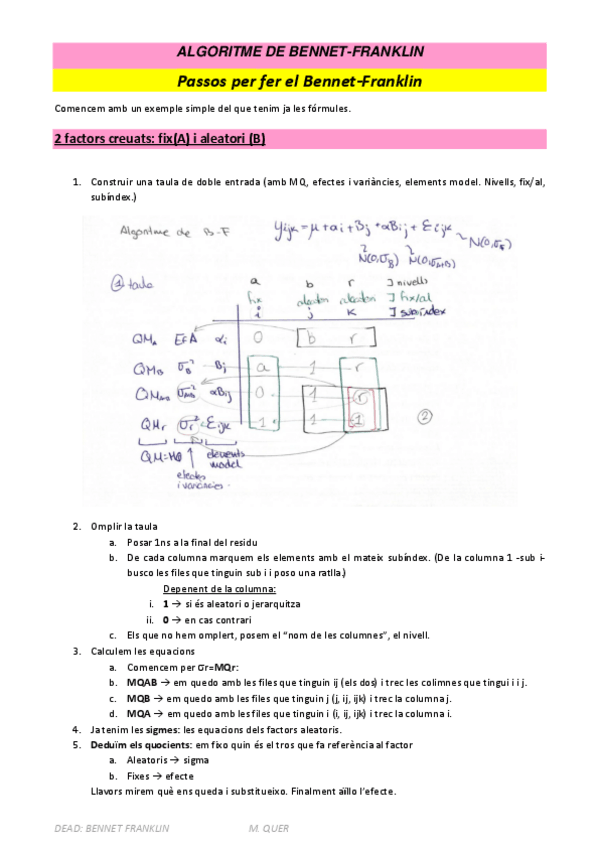 ALGORITME DE BENNET-FRANKLIN
Passos per fer el Bennet-Franklin
Comencem amb un exemple simple del que tenim ja les fórmules.
2 factors creuats: fix(A) i aleatori (B)
1. Construir una taula de doble entrada (amb MQ, efectes i variàncies, elements model. Nivells, fix/al,
subíndex.)
Algoritme de B-F Yijk = μ + αi + Bj + αBij + Eijk
N(0,σB) N(0,σAB) N(0,σE)
① taula a b r ] nivells
fix aleatori aleatori ] fix/al
i j k ] subíndex
QMA EfA αi 0 b r
QMB σB² Bj a 1 r
QMAB σAB² αBij 0 1 r
QMr σr² Eijk 1 1 1 ②
QM=MQ elements
model
efectes
i variàncies
2. Omplir la taula
a. Posar 1ns a la final del residu
b. De cada columna marquem els elements amb el mateix subíndex. (De la columna 1 -sub i-
busco les files que tinguin sub i i poso una ratlla.)
Depenent de la columna:
i. 1 → si és aleatori o jerarquitza
ii. 0 → en cas contrari
c. Els que no hem omplert, posem el “nom de les columnes”, el nivell.
3. Calculem les equacions
a. Comencem per σr=MQr:
b. MQAB → em quedo amb les files que tinguin ij (els dos) i trec les colimnes que tingui i i j.
c. MQB → em quedo amb les files que tinguin j (j, ij, ijk) i trec la columna j.
d. MQA → em quedo amb les files que tinguin i (i, ij, ijk) i trec la columna i.
4. Ja tenim les sigmes: les equacions dels factors aleatoris.
5. Deduïm els quocients: em fixo quin és el tros que fa referència al factor
a. Aleatoris → sigma
b. Fixes → efecte
Llavors mirem què ens queda i substitueixo. Finalment aïllo l’efecte.
DEAD: BENNET FRANKLIN M. QUER